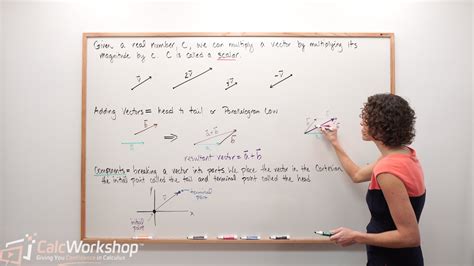 Given a real number, c, we can multiply a vector by multiplying its
magnitude by c. C is called a scalar.
v 2v -v
Adding Vectors = head to tail or Parallelogram Law
b a+b b
a a
resultant vector = a + b
Components = breaking a vector into parts. We place the vector in the Cartesian
the initial point called the tail and terminal point called the head.
terminal
point
initial
point
x
CalcWorkshop™
Giving You Confidence in Calculus